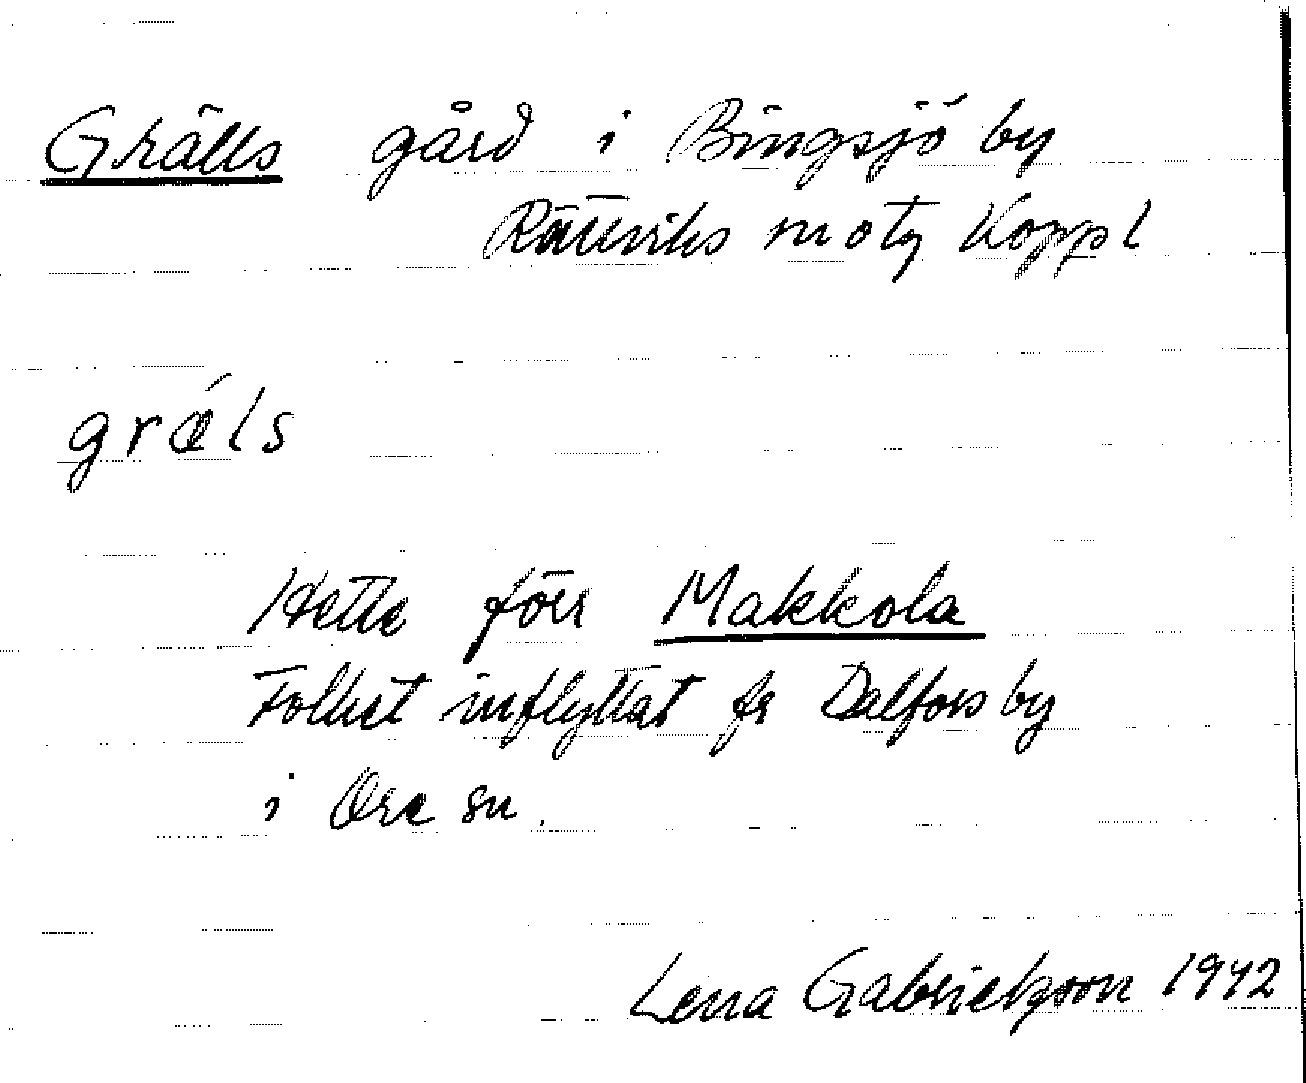 Grälls gård i Bingsjö by
Rättviks sn o tg Koppl
græ´ls
Hette förr Makkola
Folket inflyttat fr Dalfors by
i Ore sn.
Lena Gabrielsson 1942